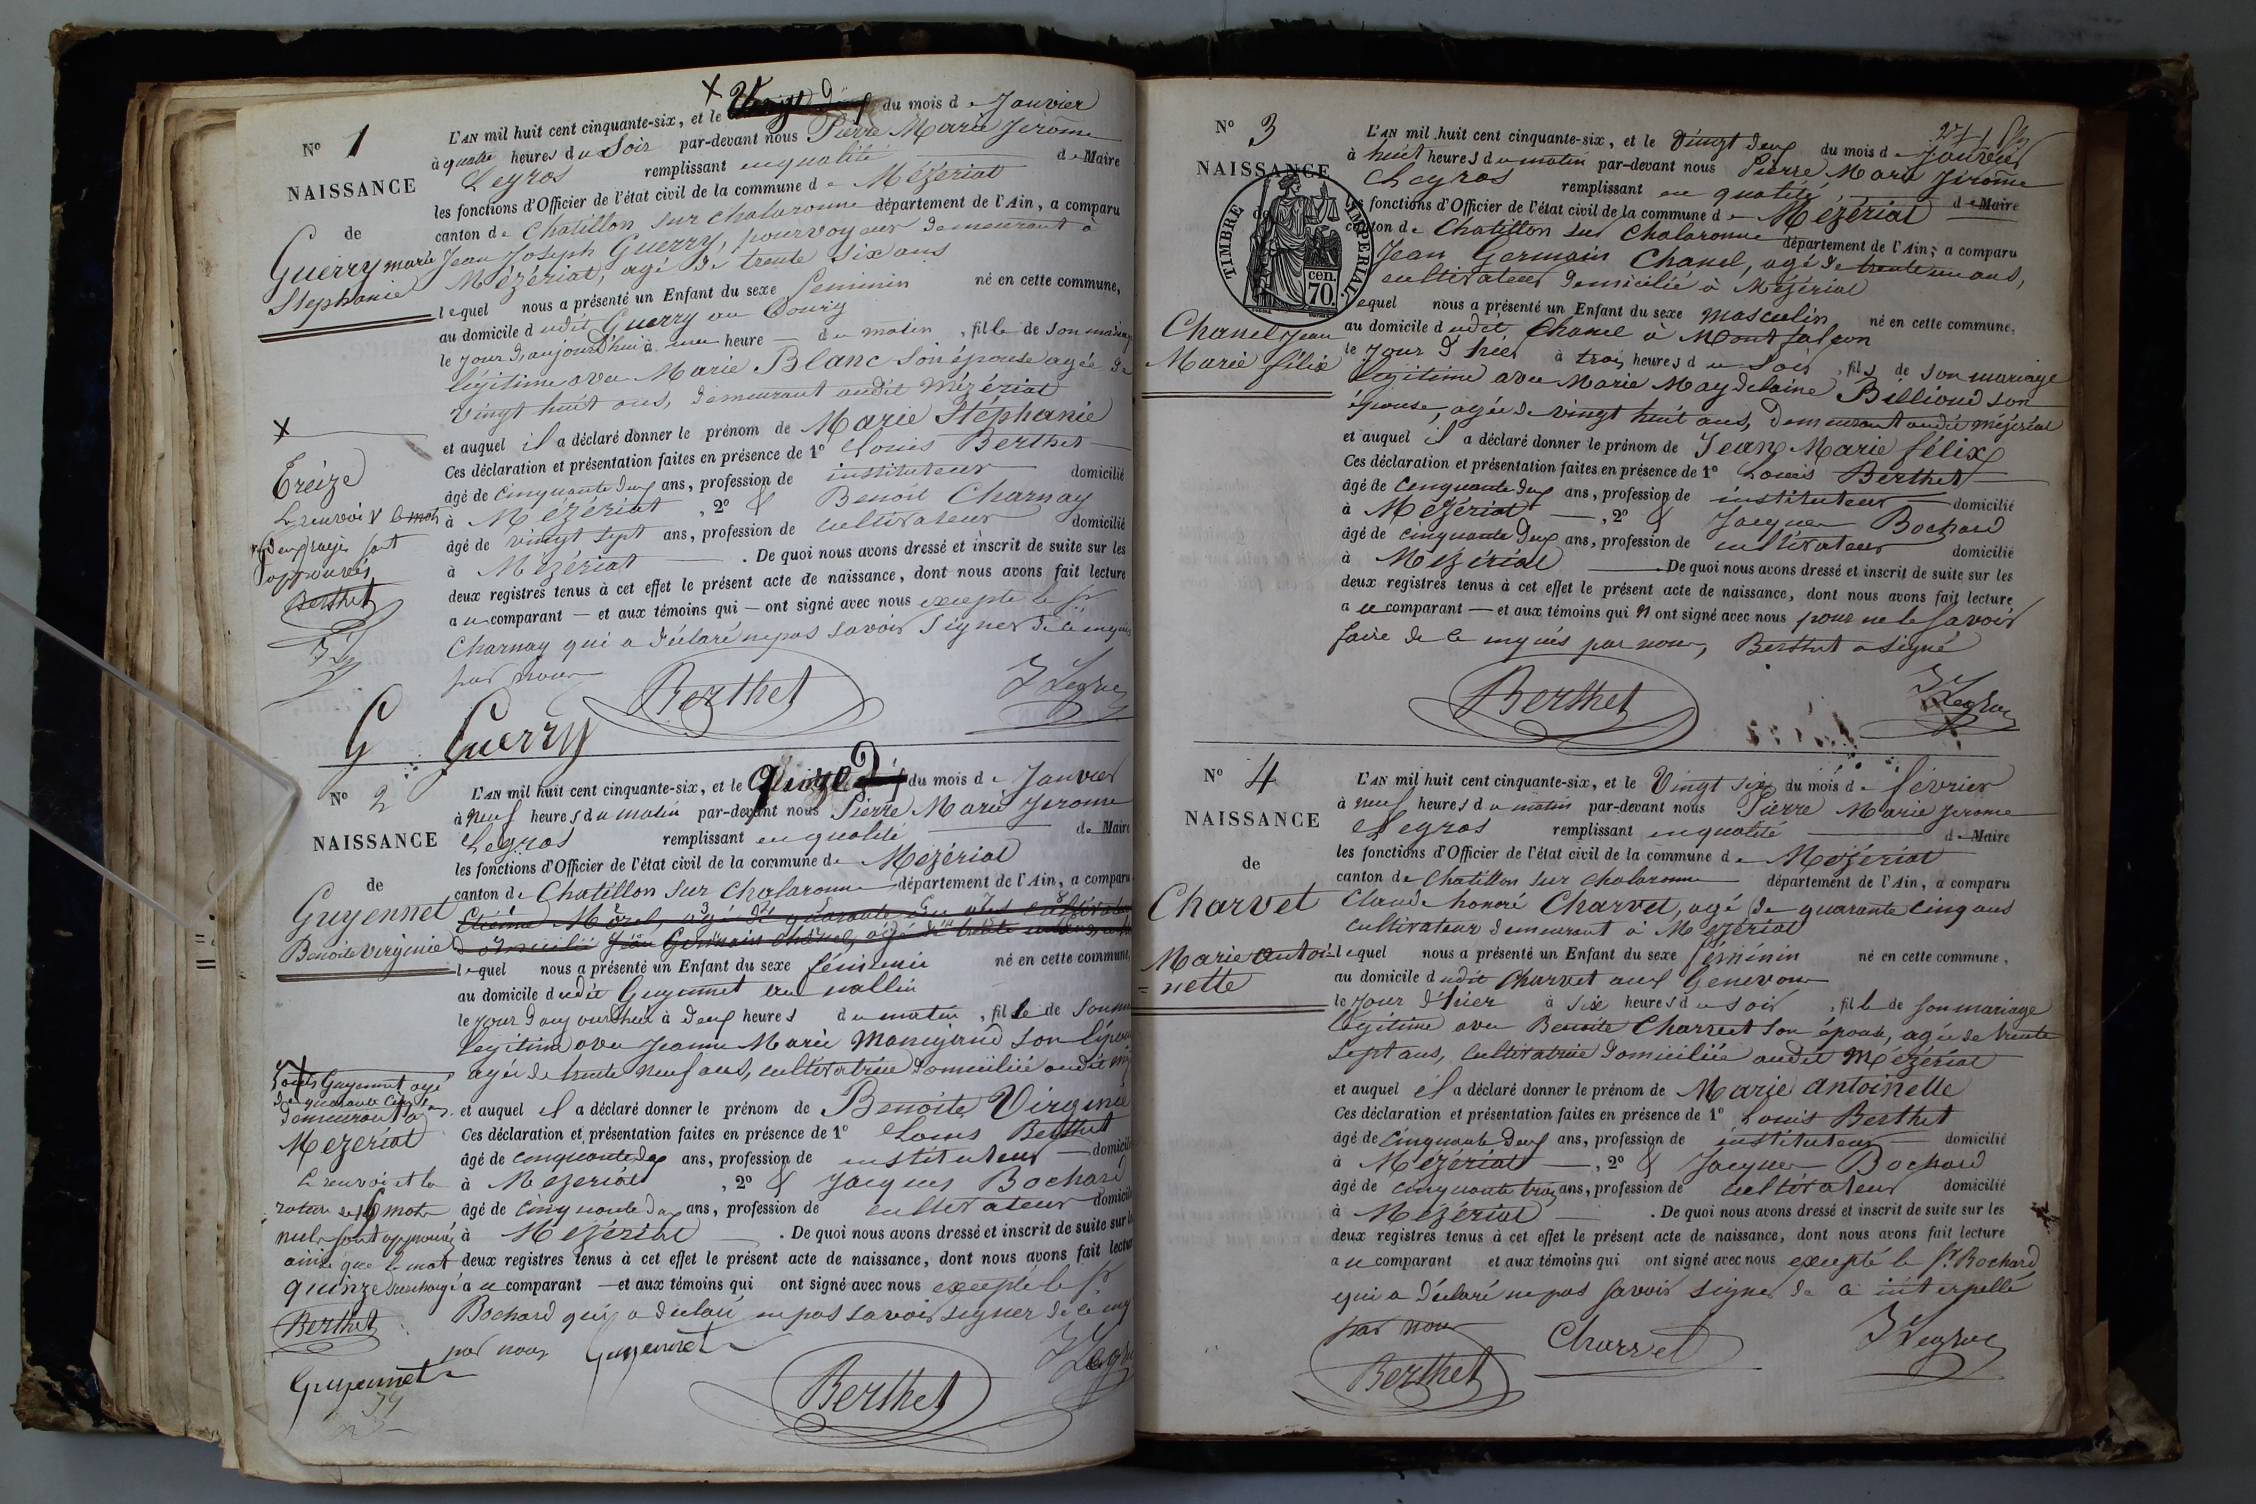 N° 1
NAISSANCE
de
Guerry Marie
Stephanie
L'AN mil huit cent cinquante-six, et le du mois de Janvier
à quatre heures du Soir par-devant nous Pierre Marie Jérome
Legros remplissant en qualité de Maire
les fonctions d'Officier de l'état civil de la commune de Mézériat
canton de Chatillon sur Chalaronne département de l'Ain, a comparu
Jean Joseph Guerry, pourvoyeur demeurant à
Mézériat, agé de trente six ans
lequel nous a présenté un Enfant du sexe feminin né en cette commune,
au domicile dudit Guerry au
le jour d'aujourd'hui à une heure du matin, fille de son mariage
légitime avec Marie Blanc son épouse agée de
vingt huit ans, demeurant audit Mézériat
et auquel il a déclaré donner le prénom de Marie Stéphanie
Ces déclaration et présentation faites en présence de 1° Louis Berthet
âgé de cinquante deux ans, profession de instituteur domicilié
à Mézériat, 2° & Benoit Charnay
âgé de vingt sept ans, profession de cultivateur domicilié
à Mézériat. De quoi nous avons dressé et inscrit de suite sur les
deux registres tenus à cet effet le présent acte de naissance, dont nous avons fait lecture
au comparant — et aux témoins qui — ont signé avec nous excepté le Sr
Charnay qui a déclaré ne pas savoir signer de ce enquis
par nous
Berthet
J Legros
G Guerry
X
Treize
Le renvoi & le mot
deux rayés sont
approuvés
Berthet
N° 2
NAISSANCE
de
Guyennet
Benoite Virginie
L'AN mil huit cent cinquante-six, et le quinze du mois de Janvier
à neuf heures du matin par-devant nous Pierre Marie Jérome
Legros remplissant en qualité de Maire
les fonctions d'Officier de l'état civil de la commune de Mézériat
canton de Chatillon sur Chalaronne département de l'Ain, a comparu
Etienne Morel, agé de quarante
domicilié Jean Germain Chanel, agé de trente
lequel nous a présenté un Enfant du sexe féminin né en cette commune,
au domicile dudit Guyennet au
le jour d'aujourd'hui à deux heures du matin, fille de son
légitime avec Jeanne Marie Manigand son
agée de trente neuf ans, cultivatrice domiciliée audit
et auquel il a déclaré donner le prénom de Benoite Virginie
Ces déclaration et présentation faites en présence de 1° Louis Berthet
âgé de cinquante deux ans, profession de instituteur domicilié
à Mézériat, 2° & Jacques Bochard
âgé de cinquante deux ans, profession de cultivateur domicilié
à Mézériat. De quoi nous avons dressé et inscrit de suite sur les
deux registres tenus à cet effet le présent acte de naissance, dont nous avons fait lecture
au comparant — et aux témoins qui ont signé avec nous excepté le Sr
Bochard qui a déclaré ne pas savoir signer de ce enq
par nous Guyennet
Berthet
J Legros
X
Louis Guyennet agé
de quarante cinq ans
demeurant à
Mezeriat
Le renvoi et la
rature de 16 mots
nuls sont approuvés
ainsi que le mot
quinze surchargé
Berthet
Guyennet
N° 3
NAISSANCE
de
TIMBRE IMPERIAL
cen.
70.
Chanel Jean
Marie félix
L'AN mil huit cent cinquante-six, et le vingt deux du mois de Janvier
à huit heures du matin par-devant nous Pierre Marie Jérome
Legros remplissant en qualité de Maire
les fonctions d'Officier de l'état civil de la commune de Mézériat
canton de Chatillon sur Chalaronne département de l'Ain, a comparu
Jean Germain Chanel, agé de trente un ans,
cultivateur domicilié à Mézériat
lequel nous a présenté un Enfant du sexe masculin né en cette commune,
au domicile dudit Chanel à Montfalcon
le jour d'hier à trois heures du soir, fils de son mariage
légitime avec Marie Magdelaine Billioud son
épouse, agée de vingt huit ans, demeurant audit Mézériat
et auquel il a déclaré donner le prénom de Jean Marie félix
Ces déclaration et présentation faites en présence de 1° Louis Berthet
âgé de cinquante deux ans, profession de instituteur domicilié
à Mézériat, 2° & Jacques Bochard
âgé de cinquante deux ans, profession de cultivateur domicilié
à Mézériat. De quoi nous avons dressé et inscrit de suite sur les
deux registres tenus à cet effet le présent acte de naissance, dont nous avons fait lecture
au comparant — et aux témoins qui n'ont signé avec nous pour ne le savoir
faire de ce enquis par nous, Berthet a signé
Berthet
J Legros
N° 4
NAISSANCE
de
Charvet
Marie Antoi-
nette
L'AN mil huit cent cinquante-six, et le vingt six du mois de février
à neuf heures du matin par-devant nous Pierre Marie Jerome
Legros remplissant en qualité de Maire
les fonctions d'Officier de l'état civil de la commune de Mézériat
canton de Chatillon sur Chalaronne département de l'Ain, a comparu
Claude honoré Charvet, agé de quarante cinq ans
cultivateur demeurant à Mézériat
lequel nous a présenté un Enfant du sexe féminin né en cette commune,
au domicile dudit Charvet aux Genevoux
le jour d'hier à six heures du soir, fille de son mariage
légitime avec Benoite Charvet son épouse, agée de trente
sept ans, cultivatrice domiciliée audit Mézériat
et auquel il a déclaré donner le prénom de Marie antoinette
Ces déclaration et présentation faites en présence de 1° Louis Berthet
âgé de cinquante deux ans, profession de instituteur domicilié
à Mézériat, 2° & Jacques Bochard
âgé de cinquante trois ans, profession de cultivateur domicilié
à Mézériat. De quoi nous avons dressé et inscrit de suite sur les
deux registres tenus à cet effet le présent acte de naissance, dont nous avons fait lecture
au comparant et aux témoins qui ont signé avec nous excepté le Sr Bochard
qui a déclaré ne pas savoir signer de ce interpellé
par nous
Berthet
Charvet
J Legros